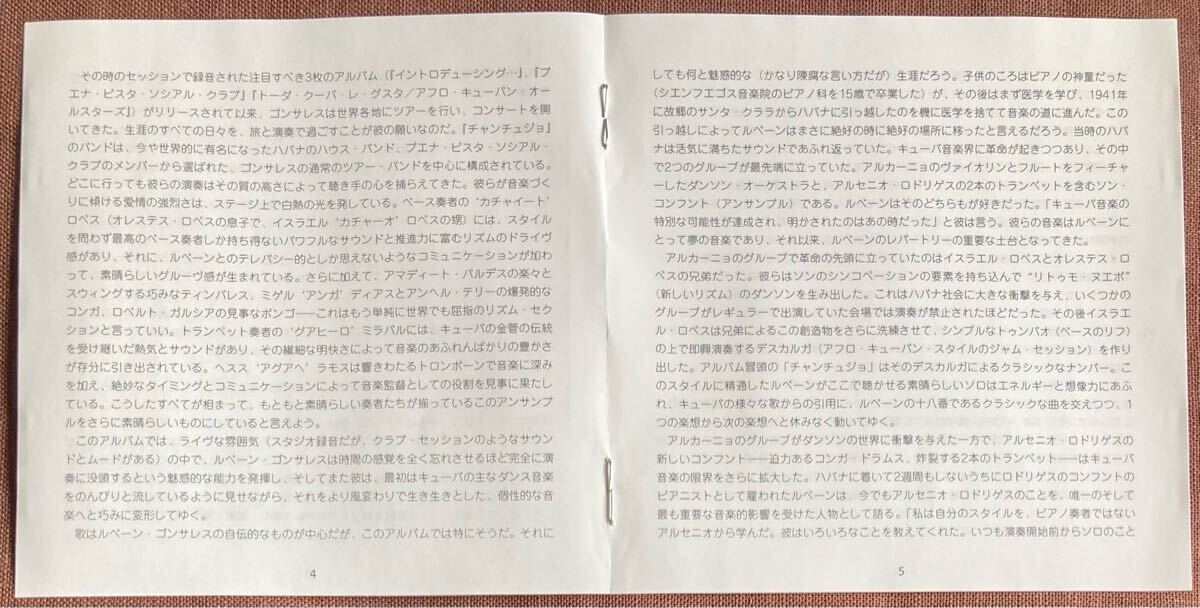 その時のセッションで録音された注目すべき3枚のアルバム（『イントロデューシング…』，『ブ
エナ・ビスタ・ソシアル・クラブ』『トーダ・クーバ・レ・グスタ／アフロ・キューバン・オー
ルスターズ』）がリリースされて以来、ゴンサレスは世界各地にツアーを行い、コンサートを開
いてきた。生涯のすべての日々を、旅と演奏で過ごすことが彼の願いなのだ。『チャンチュジョ』
のバンドは、今や世界的に有名になったハバナのハウス・バンド、ブエナ・ビスタ・ソシアル・
クラブのメンバーから選ばれた、ゴンサレスの通常のツアー・バンドを中心に構成されている。
どこに行っても彼らの演奏はその質の高さによって聴き手の心を捕らえてきた。彼らが音楽づく
りに傾ける愛情の強烈さは、ステージ上で白熱の光を発している。ベース奏者の‘カチャイート’
ロペス（オレステス・ロペスの息子で、イスラエル‘カチャーオ’ロペスの甥）には、スタイル
を問わず最高のベース奏者しか持ち得ないパワフルなサウンドと推進力に富むリズムのドライヴ
感があり、それに、ルベーンとのテレパシー的としか思えないようなコミュニケーションが加わ
って、素晴らしいグルーヴ感が生まれている。さらに加えて、アマディート・バルデスの楽々と
スウィングする巧みなティンバレス、ミゲル‘アンガ’ディアスとアンヘル・テリーの爆発的な
コンガ、ロベルト・ガルシアの見事なボンゴ——これはもう単純に世界でも屈指のリズム・セク
ションと言っていい。トランペット奏者の‘グアヒーロ’ミラバルには、キューバの金管の伝統
を受け継いだ熱気とサウンドがあり、その繊細な明快さによって音楽のあふれんばかりの豊かさ
が存分に引き出されている。ヘスス‘アグアヘ’ラモスは響きわたるトロンボーンで音楽に深み
を加え、絶妙なタイミングとコミュニケーションによって音楽監督としての役割を見事に果たし
ている。こうしたすべてが相まって、もともと素晴らしい奏者たちが揃っているこのアンサンブ
ルをさらに素晴らしいものにしていると言えよう。
このアルバムでは、ライヴな雰囲気（スタジオ録音だが、クラブ・セッションのようなサウン
ドとムードがある）の中で、ルベーン・ゴンサレスは時間の感覚を全く忘れさせるほど完全に演
奏に没頭するという魅惑的な能力を発揮し、そしてまた彼は、最初はキューバの主なダンス音楽
をのんびりと流しているように見せながら、それをより風変わりで生き生きとした、個性的な音
楽へと巧みに変形してゆく。
歌はルベーン・ゴンサレスの自伝的なものが中心だが、このアルバムでは特にそうだ。それに
4
しても何と魅惑的な（かなり陳腐な言い方だが）生涯だろう。子供のころはピアノの神童だった
（シエンフエゴス音楽院のピアノ科を15歳で卒業した）が、その後はまず医学を学び、1941年
に故郷のサンタ・クララからハバナに引っ越したのを機に医学を捨てて音楽の道に進んだ。この
引っ越しによってルベーンはまさに絶好の時に絶好の場所に移ったと言えるだろう。当時のハバ
ナは活気に満ちたサウンドであふれ返っていた。キューバ音楽界に革命が起きつつあり、その中
で2つのグループが最先端に立っていた。アルカーニョのヴァイオリンとフルートをフィーチャ
ーしたダンソン・オーケストラと、アルセニオ・ロドリゲスの2本のトランペットを含むソン・
コンフント（アンサンブル）である。ルベーンはそのどちらもが好きだった。「キューバ音楽の
特別な可能性が達成され、明かされたのはあの時だった」と彼は言う。彼らの音楽はルベーンに
とって夢の音楽であり、それ以来、ルベーンのレパートリーの重要な土台となってきた。
アルカーニョのグループで革命の先頭に立っていたのはイスラエル・ロペスとオレステス・ロ
ペスの兄弟だった。彼らはソンのシンコペーションの要素を持ち込んで“リトゥモ・ヌエボ”
（新しいリズム）のダンソンを生み出した。これはハバナ社会に大きな衝撃を与え、いくつかの
グループがレギュラーで出演していた会場では演奏が禁止されたほどだった。その後イスラエ
ル・ロペスは兄弟によるこの創造物をさらに洗練させて、シンプルなトゥンバオ（ベースのリフ）
の上で即興演奏するデスカルガ（アフロ・キューバン・スタイルのジャム・セッション）を作り
出した。アルバム冒頭の「チャンチュジョ」はそのデスカルガによるクラシックなナンバー。こ
のスタイルに精通したルベーンがここで聴かせる素晴らしいソロはエネルギーと想像力にあふ
れ、キューバの様々な歌からの引用に、ルベーンの十八番であるクラシックな曲を交えつつ、1
つの楽想から次の楽想へと休みなく動いてゆく。
アルカーニョのグループがダンソンの世界に衝撃を与えた一方で、アルセニオ・ロドリゲスの
新しいコンフント——迫力あるコンガ・ドラムス、炸裂する2本のトランペット——はキューバ
音楽の限界をさらに拡大した。ハバナに着いて2週間もしないうちにロドリゲスのコンフントの
ピアニストとして雇われたルベーンは、今でもアルセニオ・ロドリゲスのことを、唯一のそして
最も重要な音楽的影響を受けた人物として語る。「私は自分のスタイルを、ピアノ奏者ではない
アルセニオから学んだ。彼はいろいろなことを教えてくれた。いつも演奏開始前からソロのこと
5